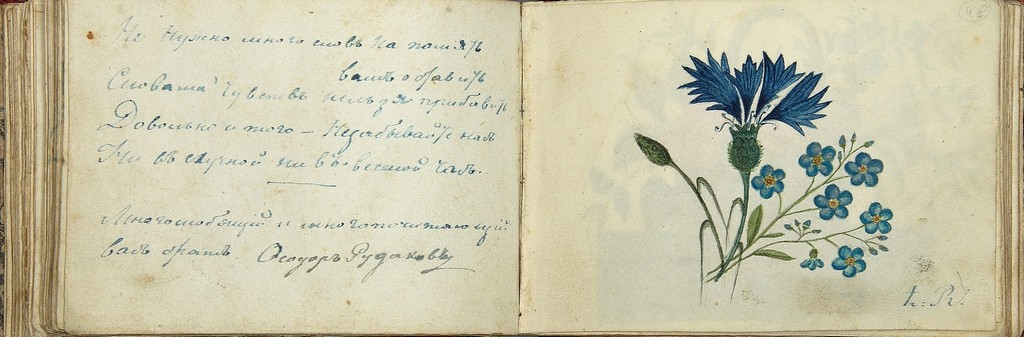 Не нужно много словъ на память
вамъ оставить
Словами чувствъ нельзя прибавить
Довольно и того – Незабывайте насъ
Ни въ скучной ни въ веселой часъ..
Многолюбящій и многопочитающій
васъ братъ. Ѳеодоръ Рудаковъ
48